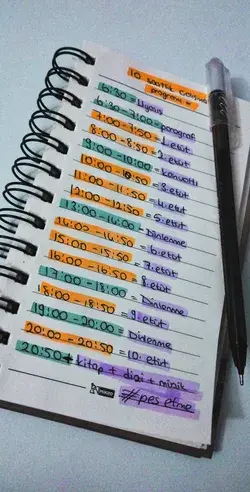 10 saatlik Çalışma
programı
6:30 = Uyanış
6:30-7:00 = paragraf
7:00-7:50 = 1. etüt
8:00-8:50 = 2. etüt
9:00-10:00 = kahvaltı
10:00-10:50 = 3. etüt
11:00-11:50 = 4. etüt
12:00-12:50 = 5. etüt
13:00-14:00 = Dinlenme
14:00-14:50 = 6. etüt
15:00-15:50 = 7. etüt
16:00-16:50 = 8. etüt
17:00-18:00 = Dinlenme
18:00-18:50 = 9. etüt
19:00-20:00 = Dinlenme
20:00-20:50 = 10. etüt
20:50 + kitap + dizi + minik
#pes etme